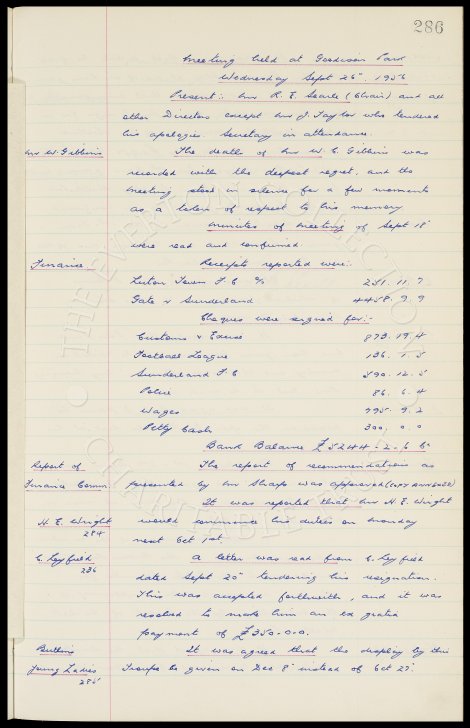 286
Meeting held at Goodison Park
Wednesday Sept 26th. 1956
Present:- Mr R. E. Searle (Chair) and all
other Directors except Mr J. Taylor who tendered
his apologies. Secretary in attendance.
Mr W. Gibbins The death of Mr W. C. Gibbins was
recorded with the deepest regret, and the
meeting stood in silence for a few moments
as a token of respect to his memory
Minutes of Meeting of Sept 18th
were read and confirmed
Finance. Receipts reported were:-
Luton Town F.C. 251. 11. 7
Gate v Sunderland 4458. 9. 9
Cheques were signed for:-
Customs & Excise 873. 19. 4
Football League 136. 1. 5
Sunderland F.C 590. 12. 5
Police 86. 6. 4
Wages 995. 9. 2
Petty Cash 300. 0. 0
Bank Balance £5244 - 2. 6
Report of The report of recommendations as
Finance Comm. presented by Mr Sharp was approved (COPY ANNEXED)
It was reported that Mr H. E. Wright
H. E. Wright would commence his duties on Monday
284 next Oct 1st.
C. Leyfield A letter was read from C. Leyfield
236 dated Sept 20th tendering his resignation.
This was accepted forthwith, and it was
resolved to make him an ex gratia
payment of £350-0-0.
Butlins It was agreed that the display by this
Young Ladies Troupe be given on Dec 8th instead of Oct 27th.
285
THE EVERTON COLLECTION
CHARITABLE